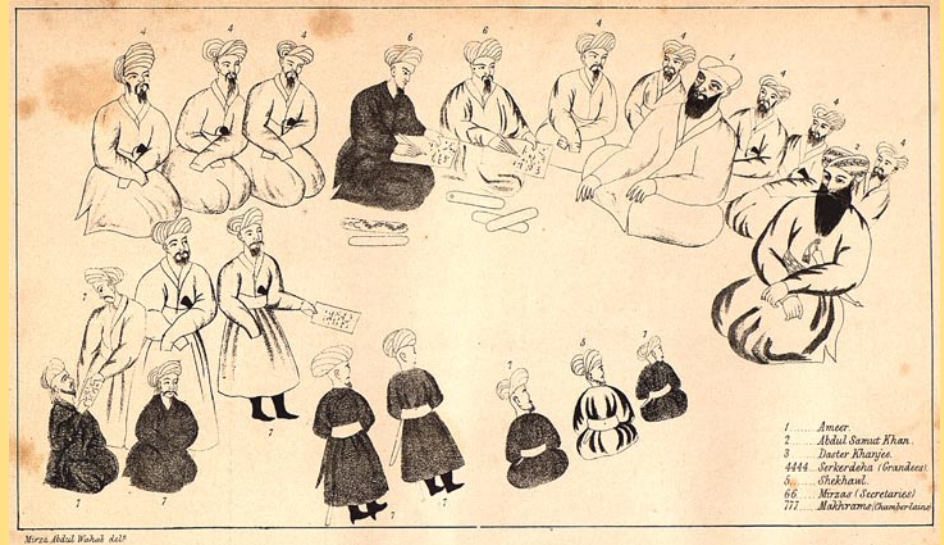 4
4
4
6
6
4
4
1
4
4
2
4
7
7
7
7
7
7
7
7
1......Ameer.
2......Abdul Samut Khan.
3......Daster Khanjee.
4444....Serkerdeha (Grandees).
5......Shekhawl.
66.....Mirzas (Secretaries)
777....Makhrams (Chamberlains)
Mirza Abdul Wahab delt.